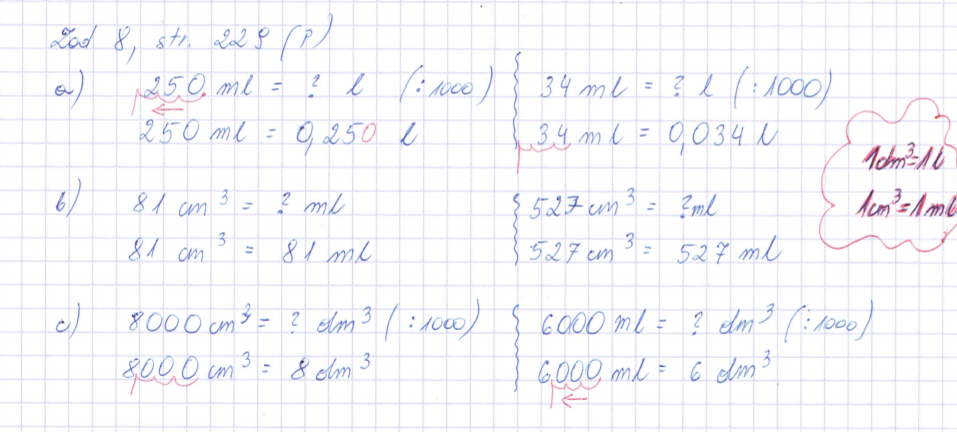 Zad 8, str. 229 (P)
a) 250 ml = ? l (:1000)
250 ml = 0,250 l
34 ml = ? l (:1000)
34 ml = 0,034 l
1dm³=1l
1cm³=1ml
b) 81 cm³ = ? ml
81 cm³ = 81 ml
527 cm³ = ?ml
527 cm³ = 527 ml
c) 8000 cm³ = ? dm³ (:1000)
8000 cm³ = 8 dm³
6000 ml = ? dm³ (:1000)
6000 ml = 6 dm³